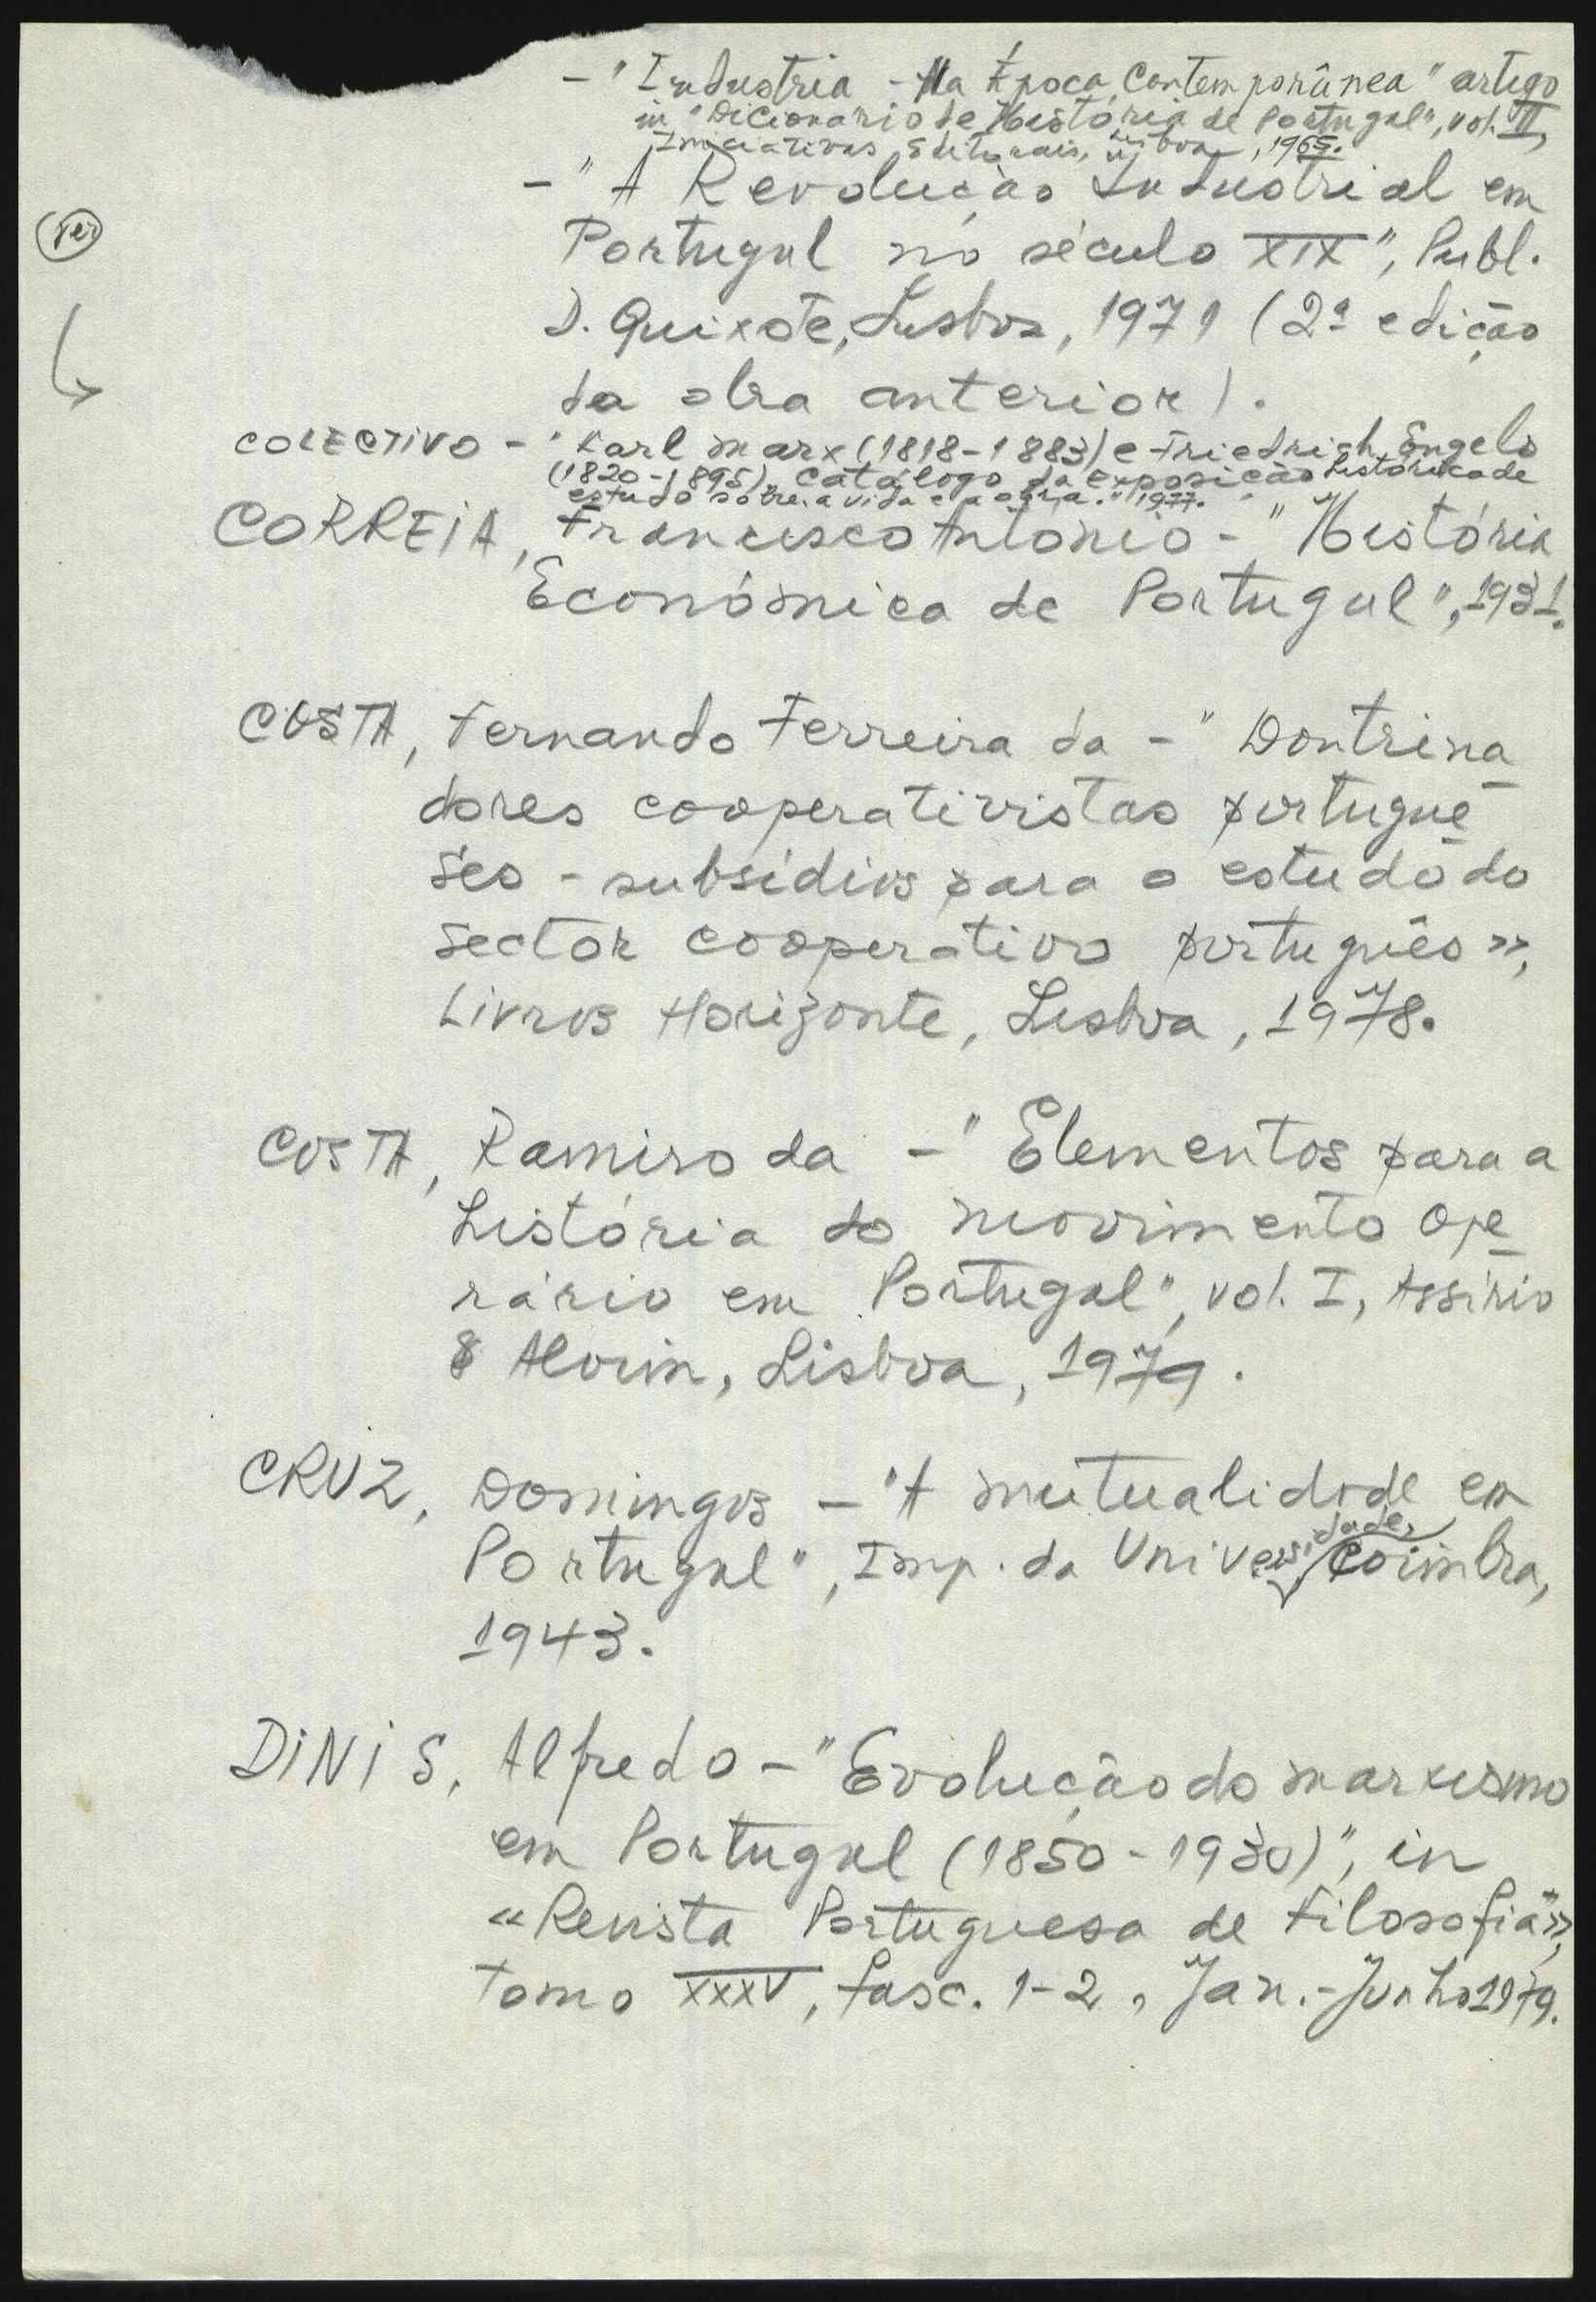 - "Industria - Na Época Contemporânea" artigo
in "Dicionario de História de Portugal", vol. II,
Iniciativas Editoriais, Lisboa, 1965.
- "A Revolução Industrial em
Portugal no século XIX", Publ.
D. Quixote, Lisboa, 1971 (2ª edição
da obra anterior).
COLECTIVO - "Karl Marx (1818-1883) e Friedrich Engels
(1820-1895). Catálogo da exposição histórica de
estudo sobre a vida e a obra." 1977.
CORREIA, Francisco António - "História
Económica de Portugal", 1931.
COSTA, Fernando Ferreira da - "Doutrina
dores cooperativistas portugue
ses - subsídios para o estudo do
sector cooperativo português»,
Livros Horizonte, Lisboa, 1978.
COSTA, Ramiro da - "Elementos para a
história do movimento ope
rário em Portugal", vol. I, Assírio
& Alvim, Lisboa, 1979.
CRUZ, Domingos - "A mutualidade em
Portugal", Imp. da Universidade, Coimbra,
1943.
DINIS, Alfredo - "Evolução do marxismo
em Portugal (1850-1930)", in
«Revista Portuguesa de Filosofia»,
tomo XXXV, fasc. 1-2, Jan.-Junho 1979.